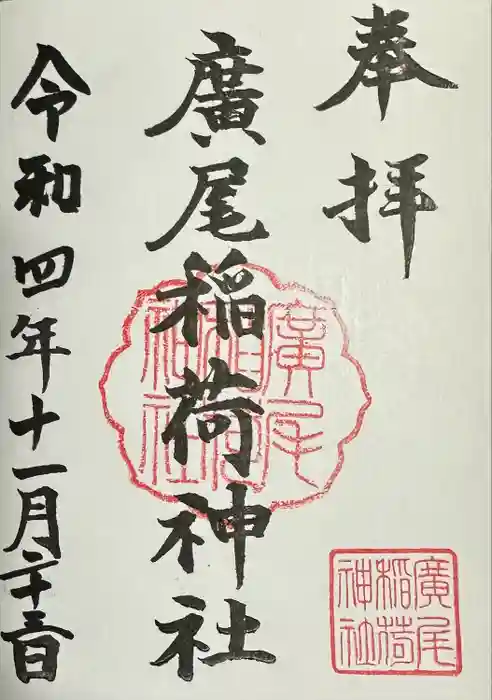 奉拝
廣尾稲荷神社
令和四年十一月二十三日
廣尾稲荷神社
廣尾稲荷神社